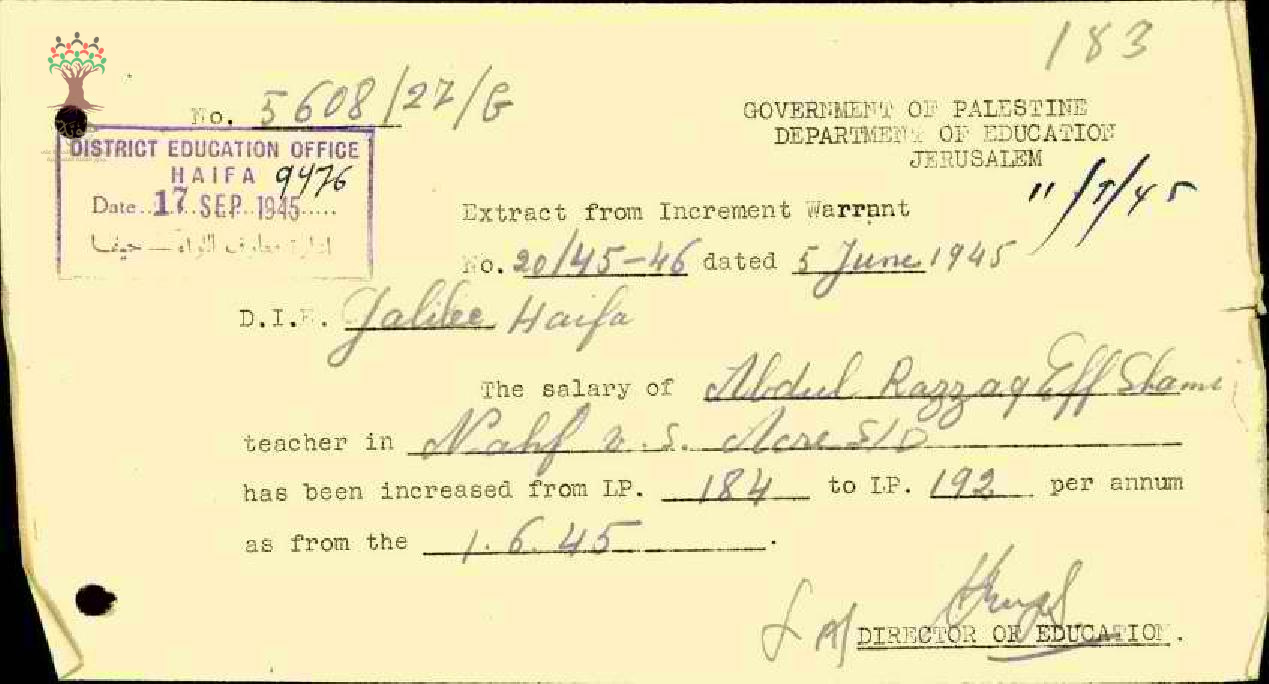 183
No. 5608/27/G
GOVERNMENT OF PALESTINE
DEPARTMENT OF EDUCATION
JERUSALEM
DISTRICT EDUCATION OFFICE
HAIFA 9476
Date..17 SEP 1945.....
ادارة معارف اللواء – حيفا
11/7/45
Extract from Increment Warrant
No. 20/45-46 dated 5 June 1945
D.I.E. Galilee Haifa
The salary of Abdul Razzaq Eff Shami
teacher in Nahf v.S. Acre S/D
has been increased from LP. 184 to LP. 192 per annum
as from the 1.6.45.
DIRECTOR OF EDUCATION.